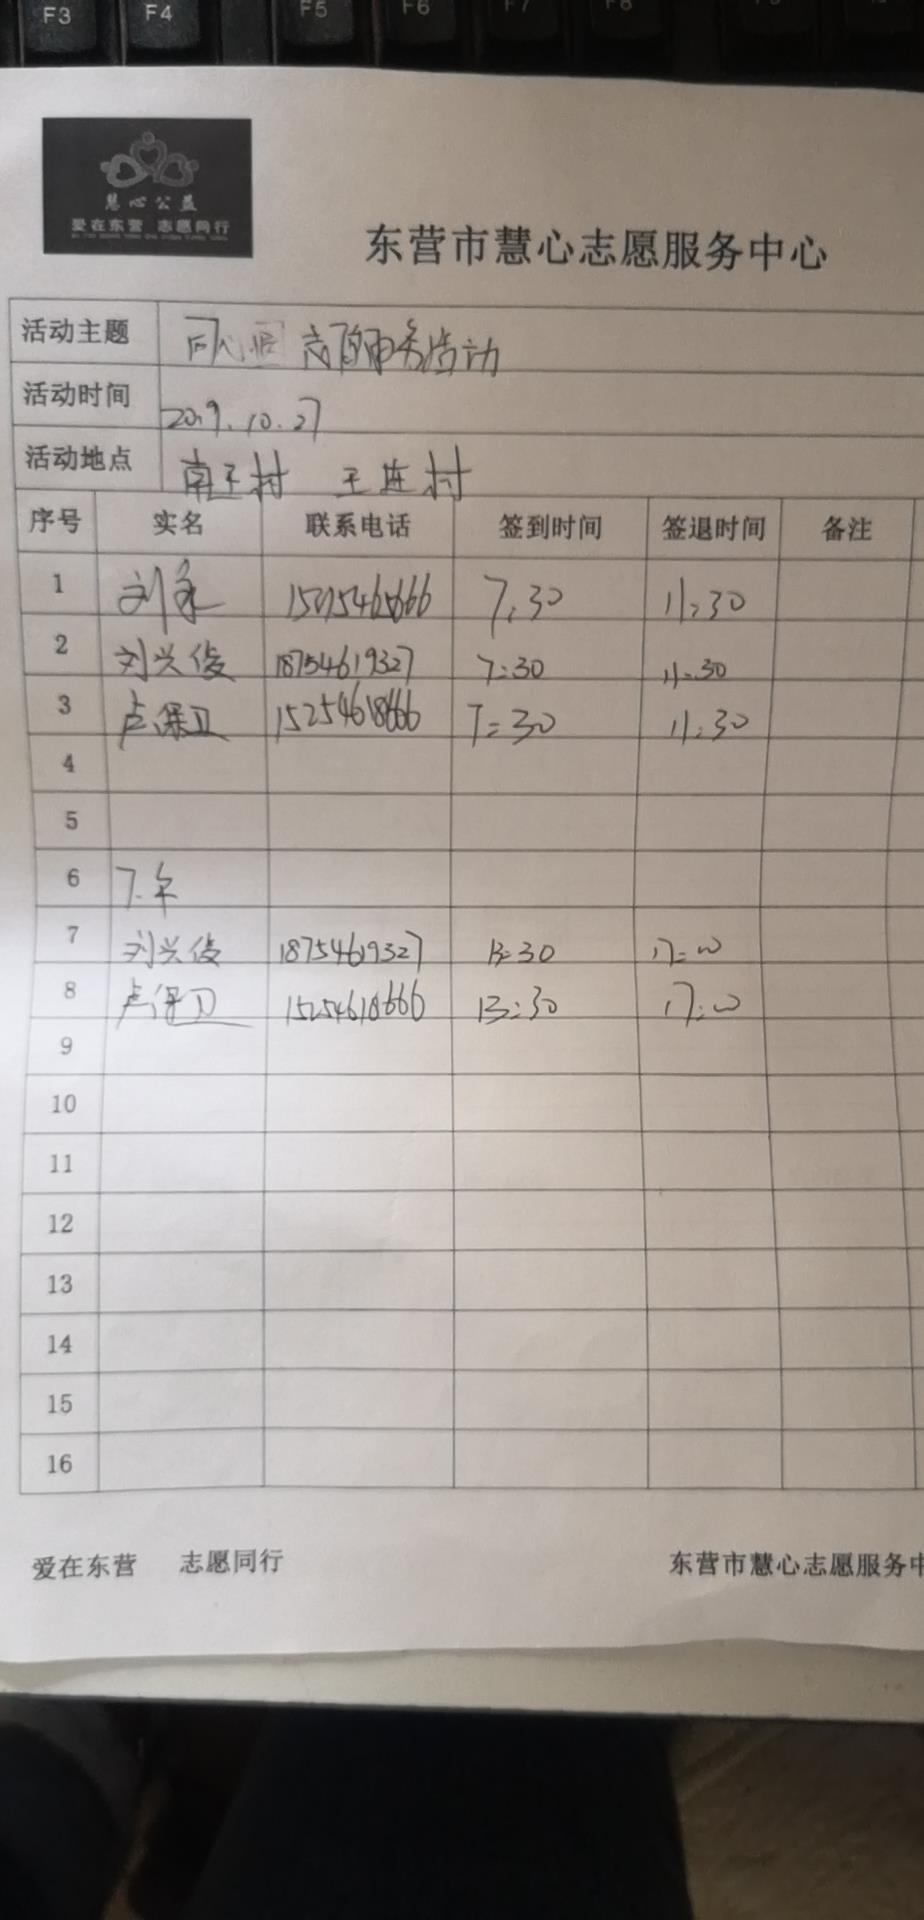 F3 F4 F5 F6 F7 F8
慧心公益
爱在东营 志愿同行
东营市慧心志愿服务中心
活动主题 志愿服务活动
活动时间 2019.10.27
活动地点 南王村 王连村
序号 实名 联系电话 签到时间 签退时间 备注
1 刘永 7:30 11:30
2 刘兴俊 18754619327 7:30 11:30
3 卢保卫 15254618666 7:30 11:30
4
5
6 下午
7 刘兴俊 18754619327 13:30 17:00
8 卢保卫 15254618666 13:30 17:00
9
10
11
12
13
14
15
16
爱在东营 志愿同行 东营市慧心志愿服务中